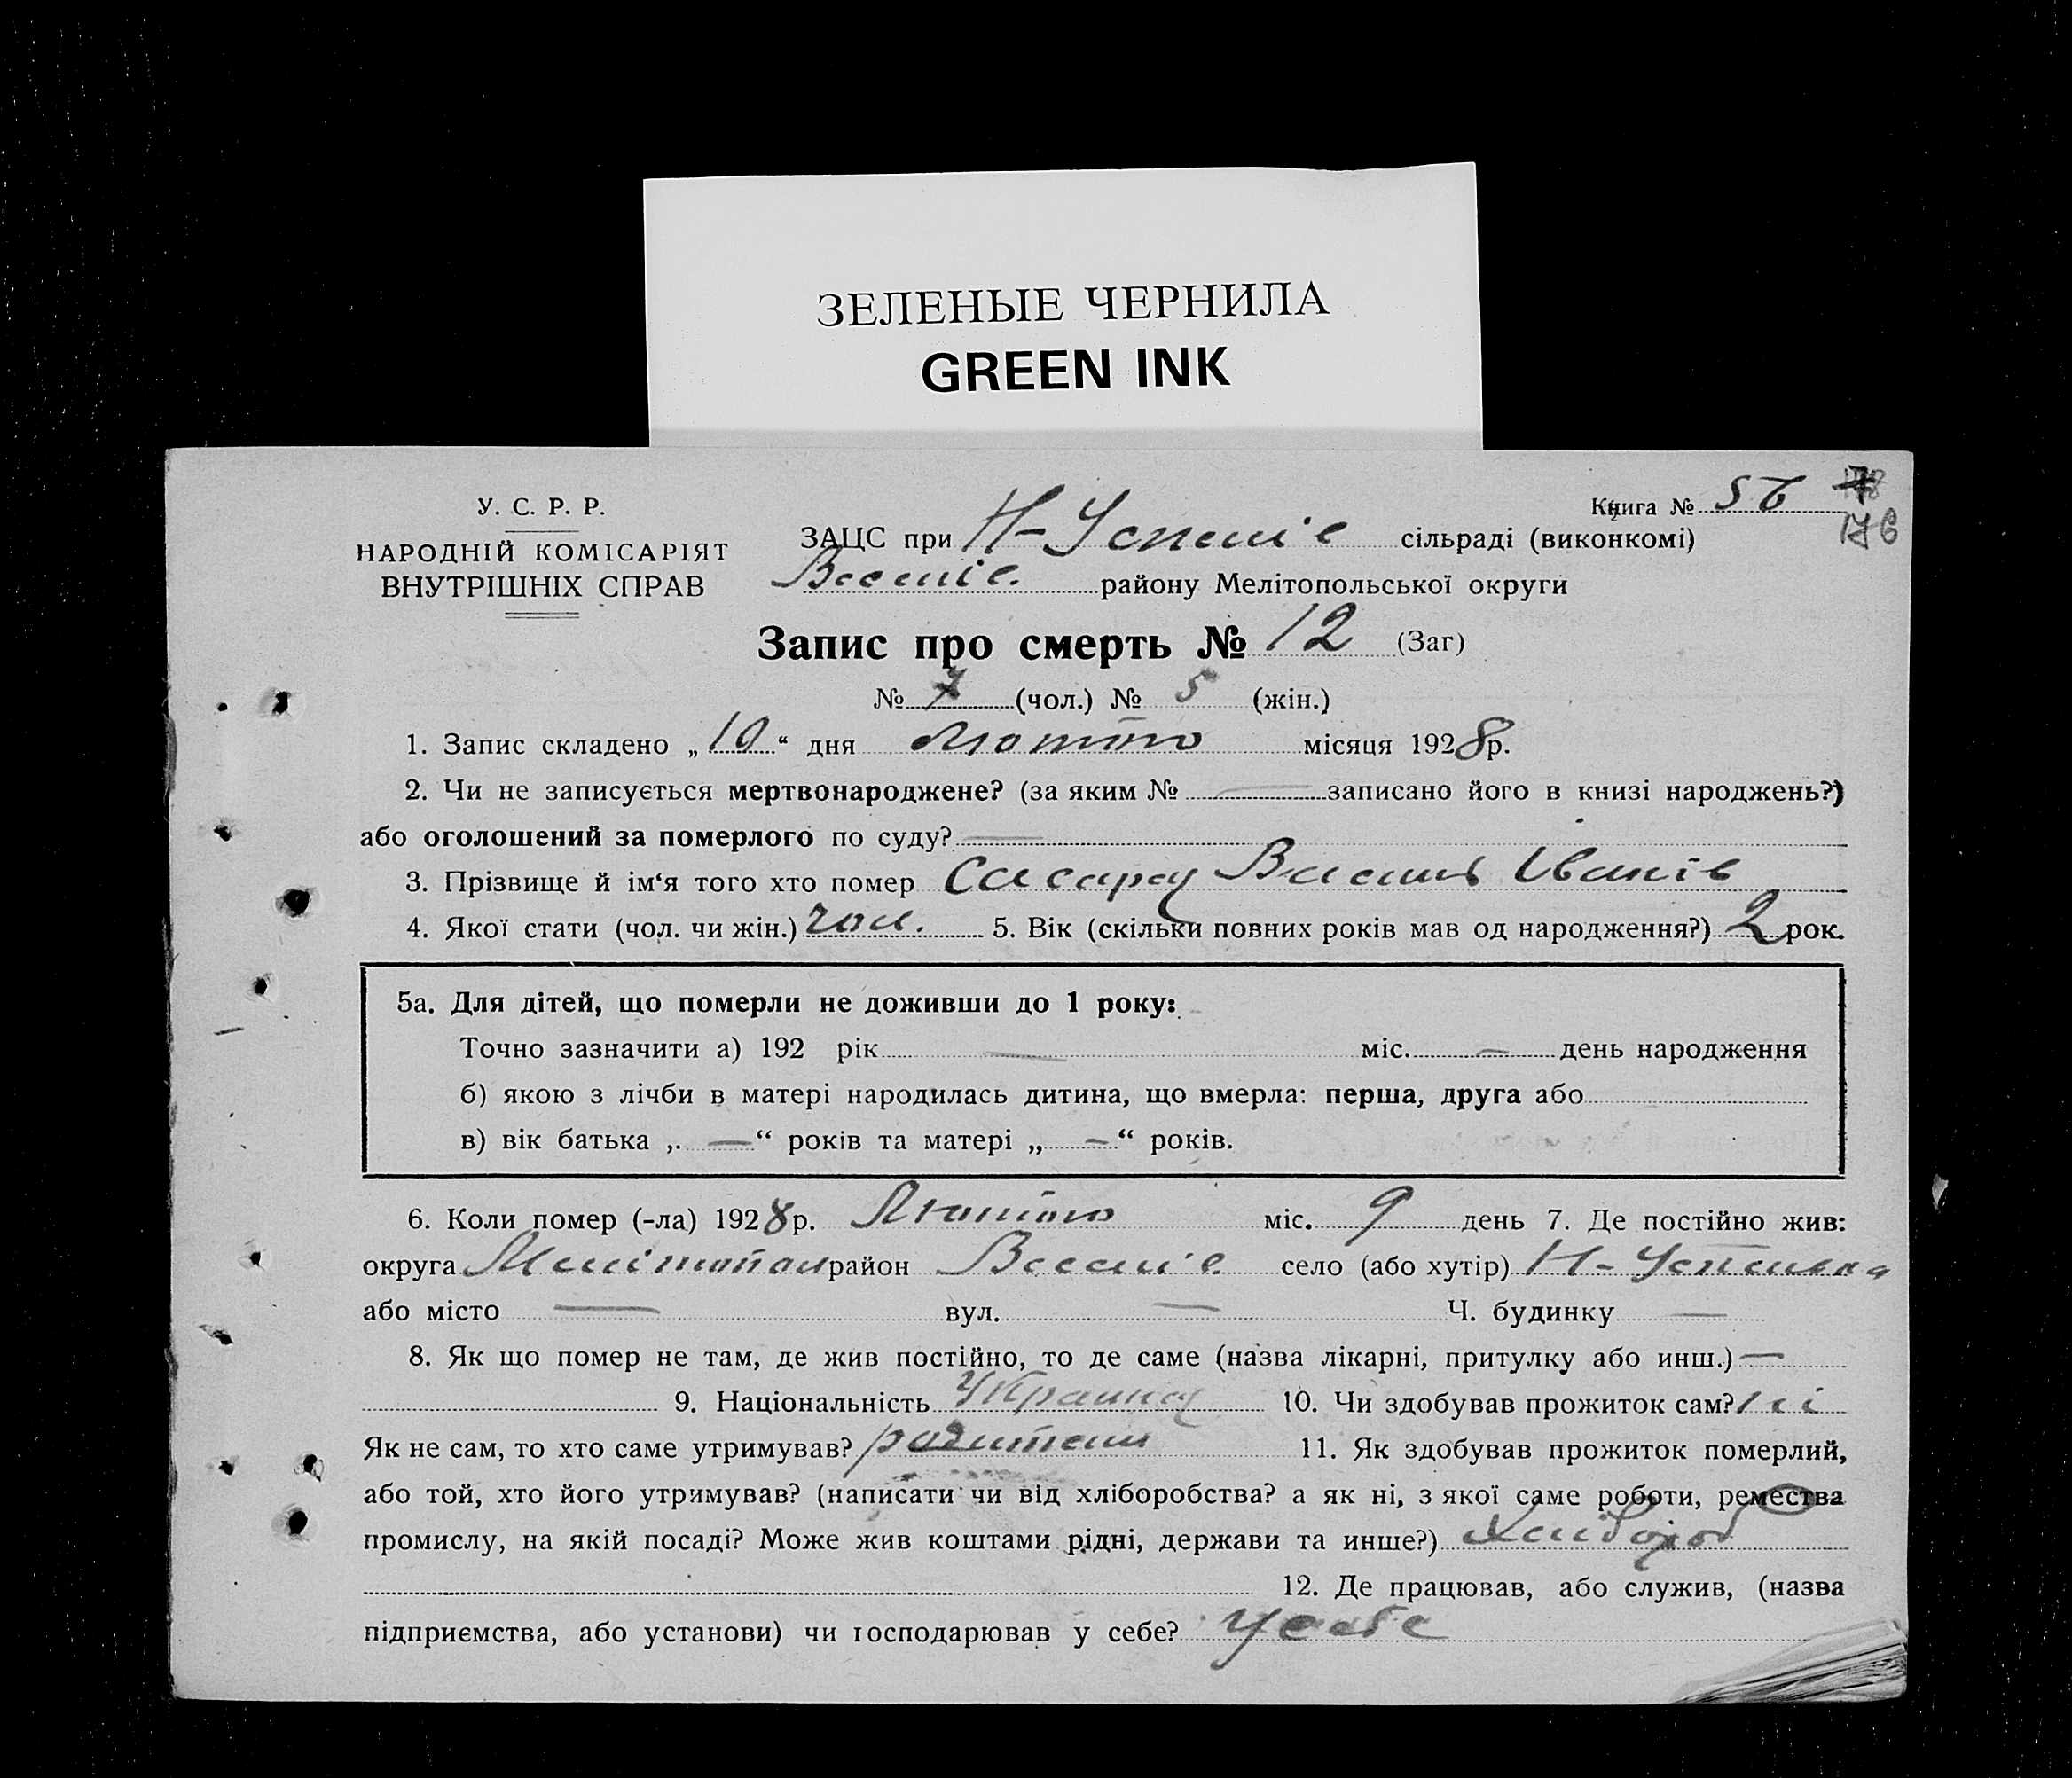 ЗЕЛЕНЫЕ ЧЕРНИЛА
GREEN INK
У. С. Р. Р.
НАРОДНІЙ КОМІСАРІЯТ
ВНУТРІШНІХ СПРАВ
Книга № 5б
176
ЗАЦС при Н-Успенів сільраді (виконкомі)
Веселів. району Мелітопольської округи
Запис про смерть № 12 (Заг)
№ 7 (чол.) № 5 (жін.)
1. Запис складено „10“ дня Лютого місяця 1928р.
2. Чи не записується мертвонароджене? (за яким № — записано його в книзі народжень?)
або оголошений за померлого по суду? —
3. Прізвище й ім‘я того хто помер Василь Іванів
4. Якої стати (чол. чи жін.) чол. 5. Вік (скільки повних років мав од народження?) 2 рок.
5а. Для дітей, що померли не доживши до 1 року:
Точно зазначити а) 192 рік — міс. — день народження
б) якою з лічби в матері народилась дитина, що вмерла: перша, друга або
в) вік батька „. — “ років та матері „ — “ років.
6. Коли помер (-ла) 1928р. Лютого міс. 9 день 7. Де постійно жив:
округа Мелітопол район Веселів. село (або хутір) Н-Успенька
або місто — вул. — Ч. будинку —
8. Як що помер не там, де жив постійно, то де саме (назва лікарні, притулку або инш.) —
9. Національність Украина 10. Чи здобував прожиток сам? ні
Як не сам, то хто саме утримував? родители 11. Як здобував прожиток померлий,
або той, хто його утримував? (написати чи від хліборобства? а як ні, з якої саме роботи, ремества
промислу, на якій посаді? Може жив коштами рідні, держави та инше?) Хлібороб
12. Де працював, або служив, (назва
підприємства, або установи) чи господарював у себе? у себе